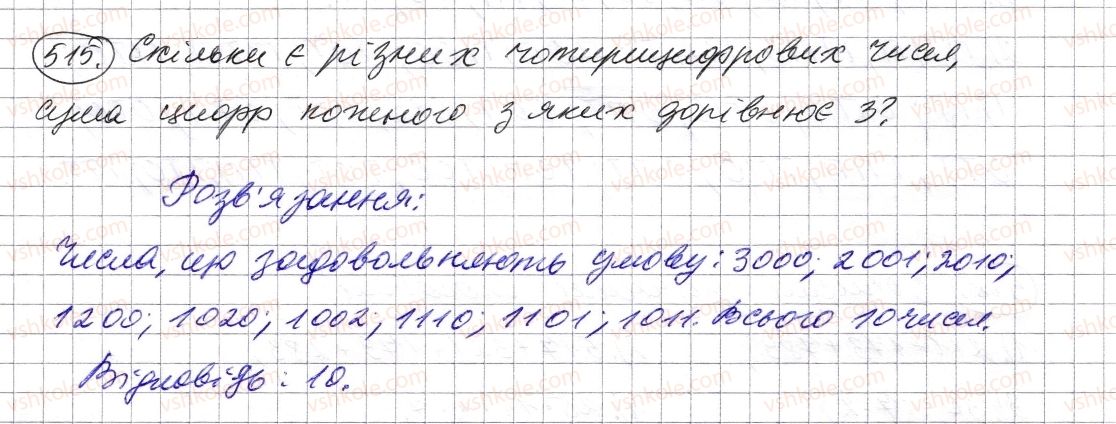 515. Скільки є різних чотирицифрових чисел,
сума цифр кожного з яких дорівнює 3?
Розв'язання:
Числа, що задовольняють умову: 3000; 2001; 2010;
1200; 1020; 1002; 1110; 1101; 1011. Всього 10 чисел.
Відповідь: 10.